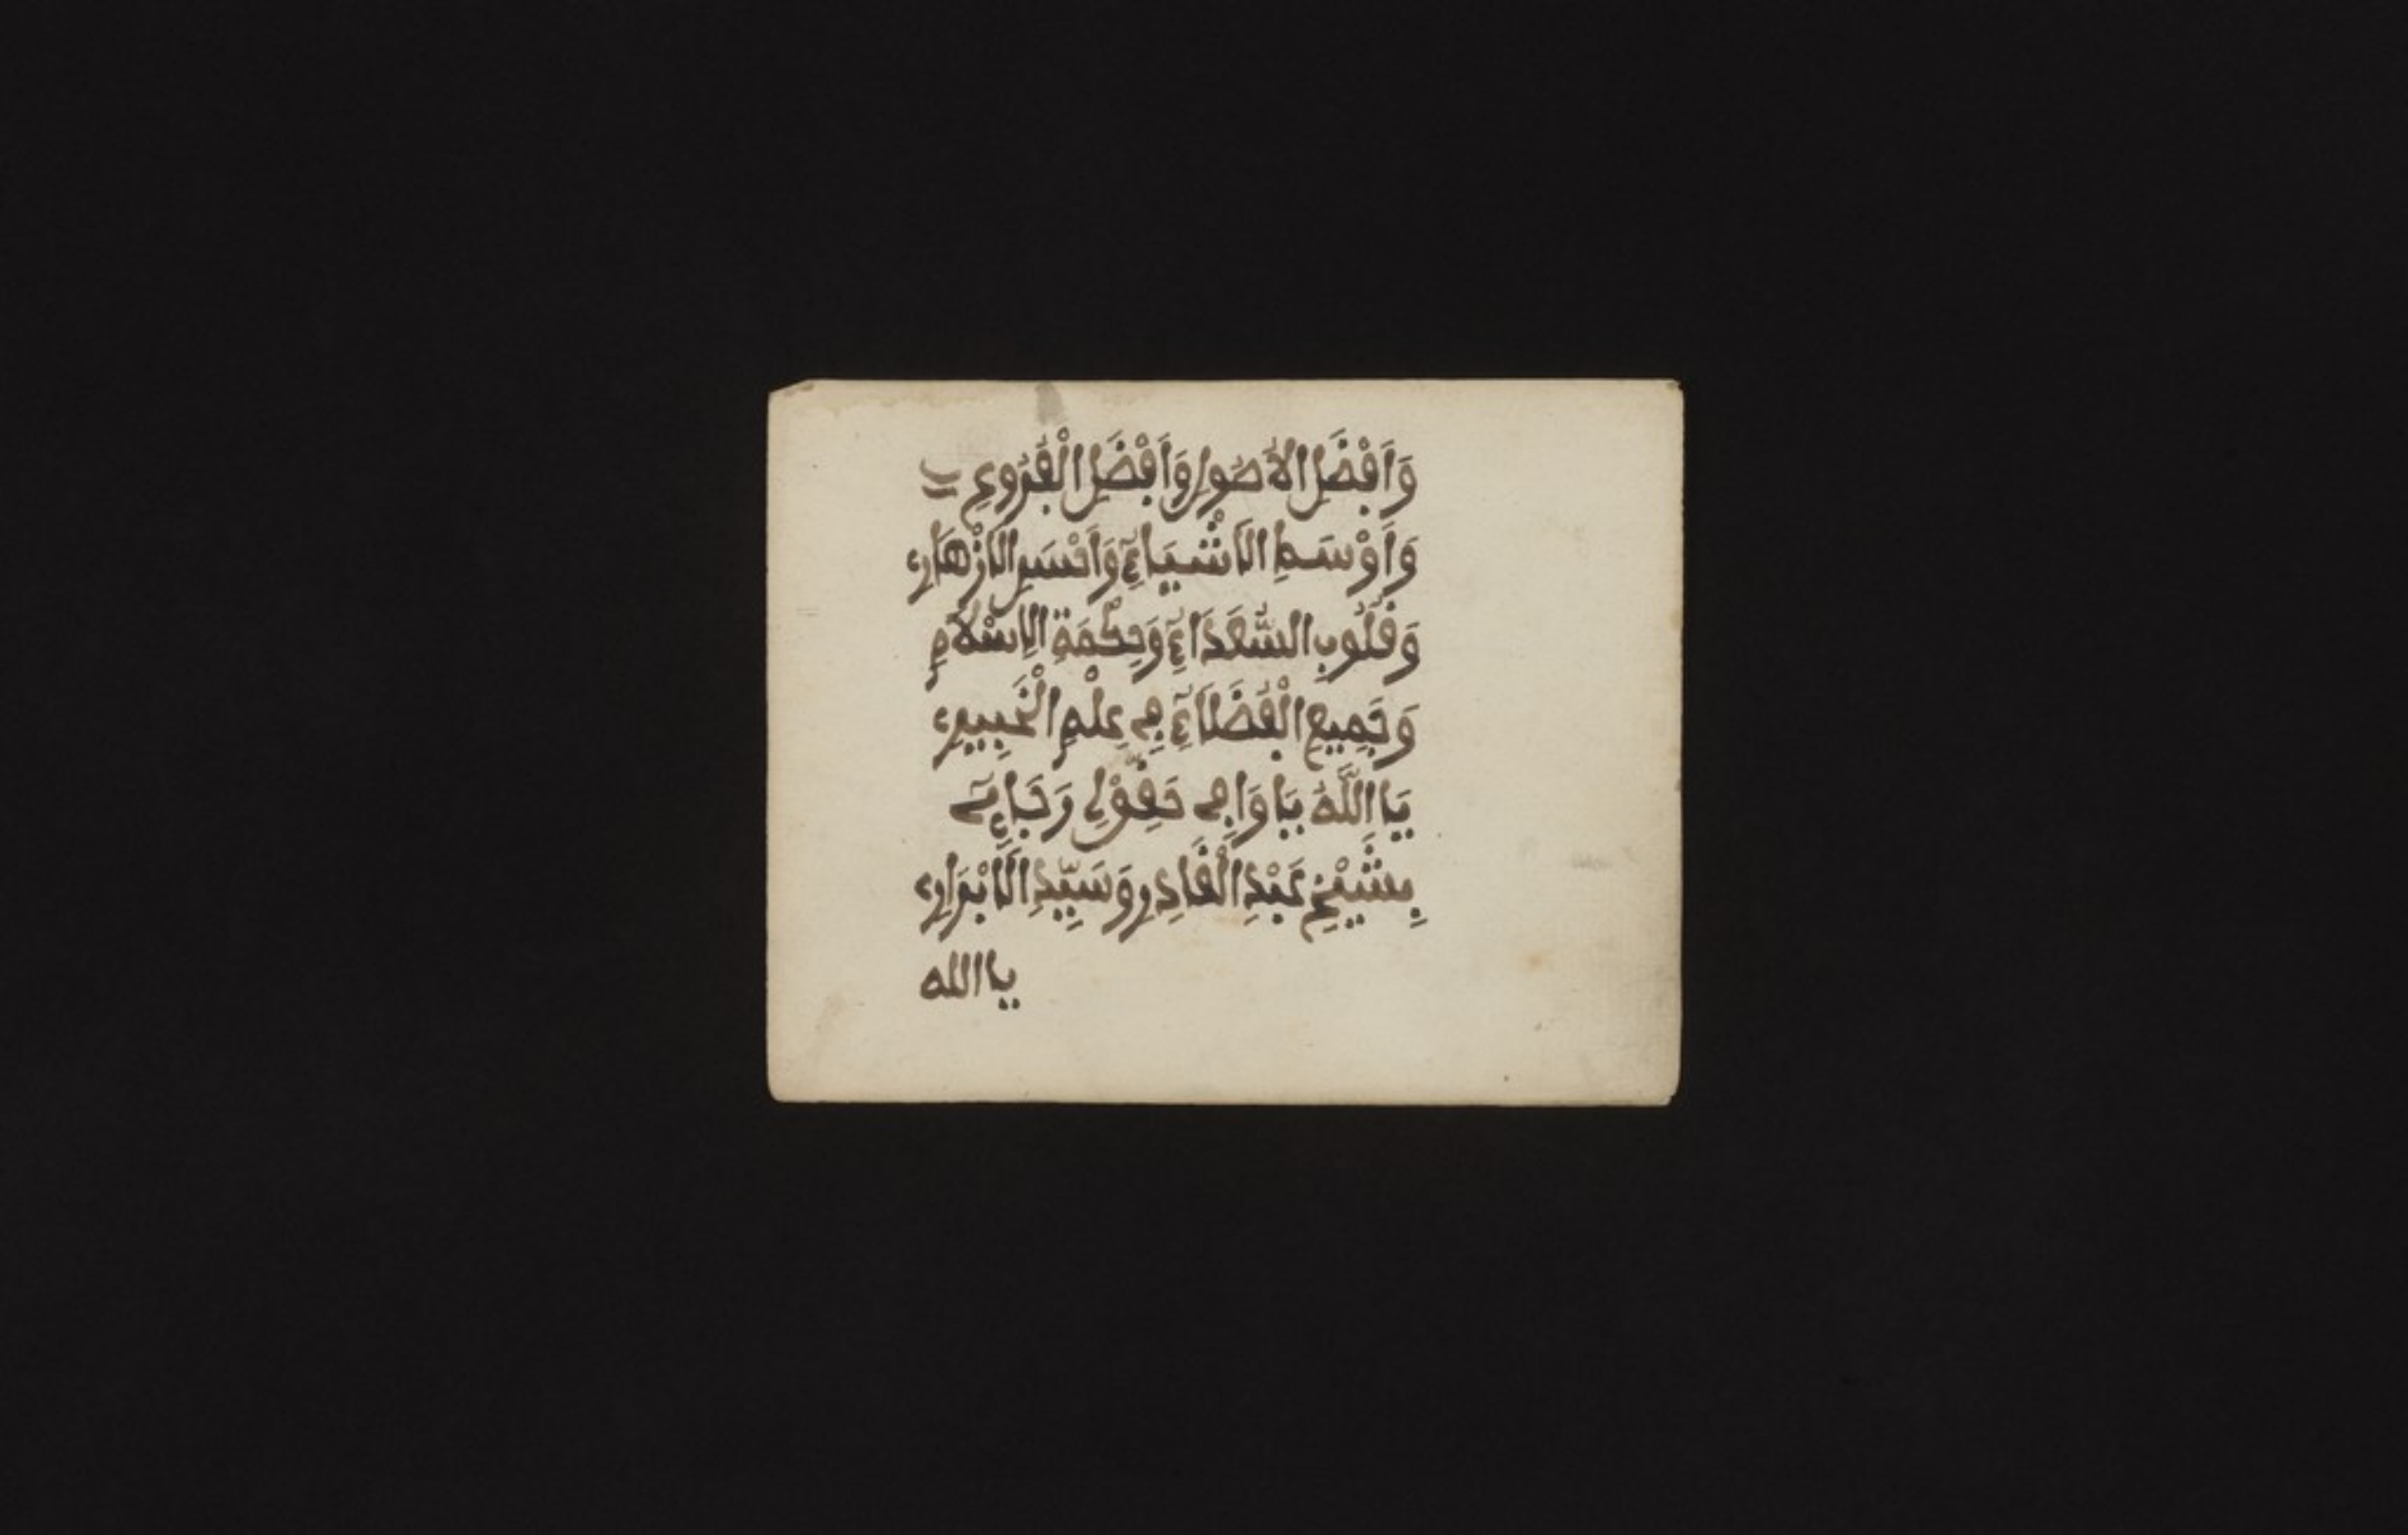 وَاَفْضَلِ الاُصُولِ وَاَفْضَلِ الْفُرُوعِ
وَاَوْسَطِ الاَشْيَاءِ وَاَحْسَنِ الاَزْهَارِ
وَقُلُوبِ السُّعَدَاءِ وَحِكْمَةِ الاِسْلَامِ
وَجَمِيعِ الْفُضَلَاءِ فِي عِلْمِ الْخَبِيرِ
يَا اللَّهُ يَا وَافِي حَقِّقْ لِي رَجَاءِي
بِشَيْخِ عَبْدِ الْقَادِرِ وَسَيِّدِ الاَبْرَارِ
يا الله